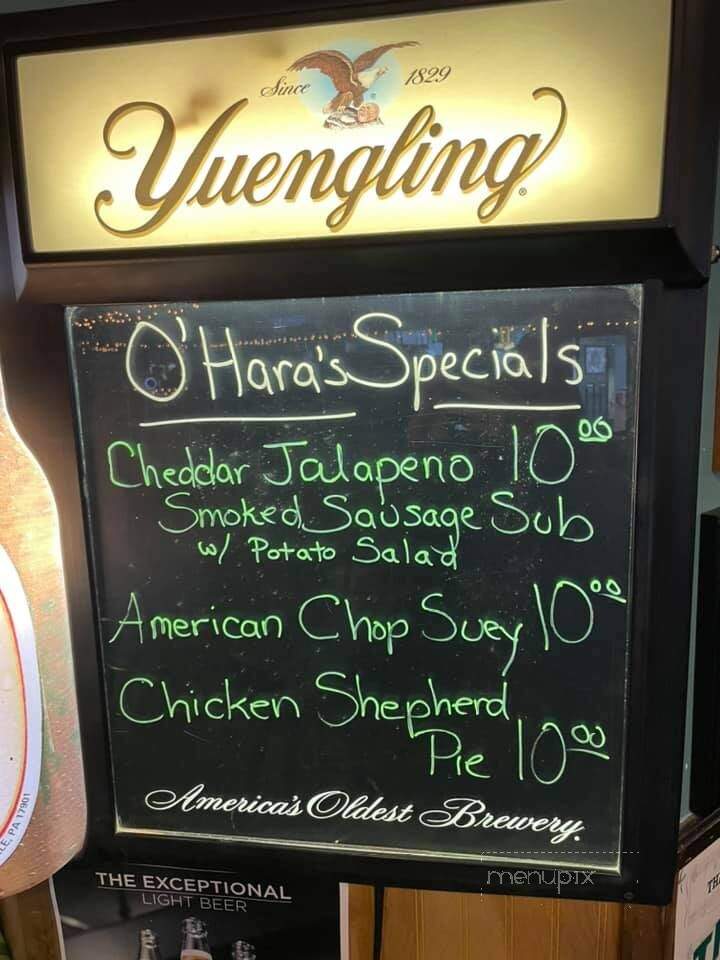 Since 1829
Yuengling®
O'Hara's Specials
Cheddar Jalapeno 10 00
Smoked Sausage Sub
w/ Potato Salad
American Chop Suey 10 00
Chicken Shepherd
Pie 10 00
America's Oldest Brewery.
menupix
THE EXCEPTIONAL
LIGHT BEER
PA 17901